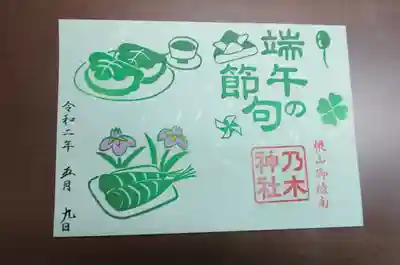 端午の
節句
桃山御陵南
乃木
神社
令和二年 五月 九日